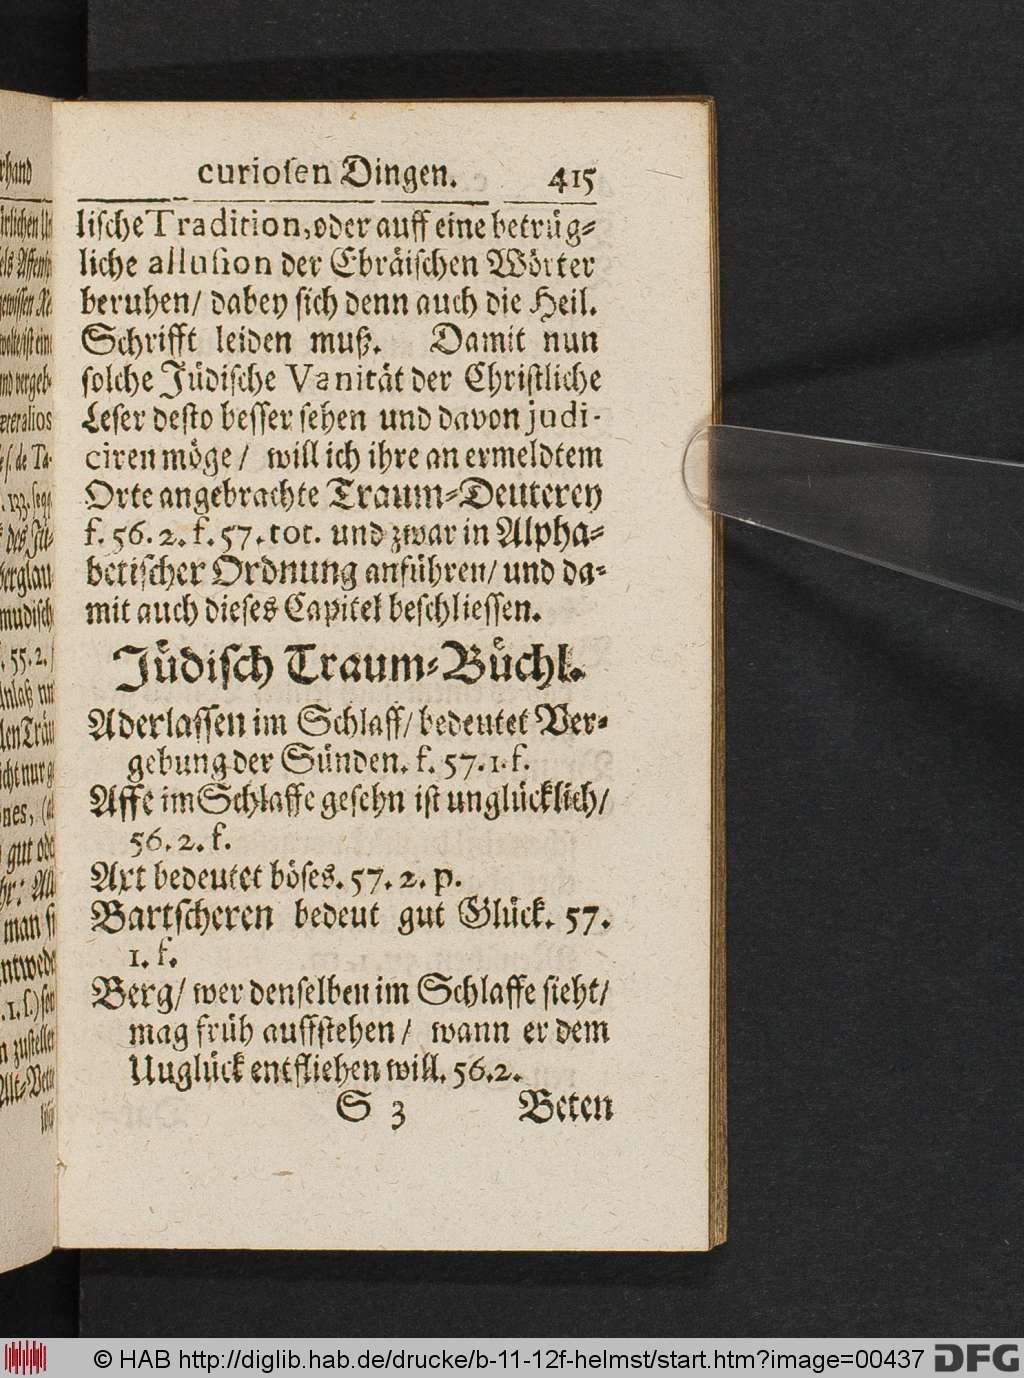 curiosen Dingen. 415
lische Tradition, oder auff eine betrüg-
liche allusion der Ebräischen Wörter
beruhen/ dabey sich denn auch die Heil.
Schrifft leiden muß. Damit nun
solche Jüdische Vanität der Christliche
Leser desto besser sehen und davon judi-
ciren möge/ will ich ihre an ermeldtem
Orte angebrachte Traum-Deuterey
f. 56. 2. f. 57. tot. und zwar in Alpha-
betischer Ordnung anführen/ und da-
mit auch dieses Capitel beschliessen.
Jüdisch Traum-Büchl.
Aderlassen im Schlaff/ bedeutet Ver-
gebung der Sünden. f. 57. 1. f.
Affe im Schlaffe gesehn ist unglücklich/
56. 2. f.
Axt bedeutet böses. 57. 2. p.
Bartscheren bedeut gut Glück. 57.
1. f.
Berg/ wer denselben im Schlaffe sieht/
mag früh auffstehen/ wann er dem
Unglück entfliehen will. 56. 2.
S 3 Beten
© HAB http://diglib.hab.de/drucke/b-11-12f-helmst/start.htm?image=00437 DFG